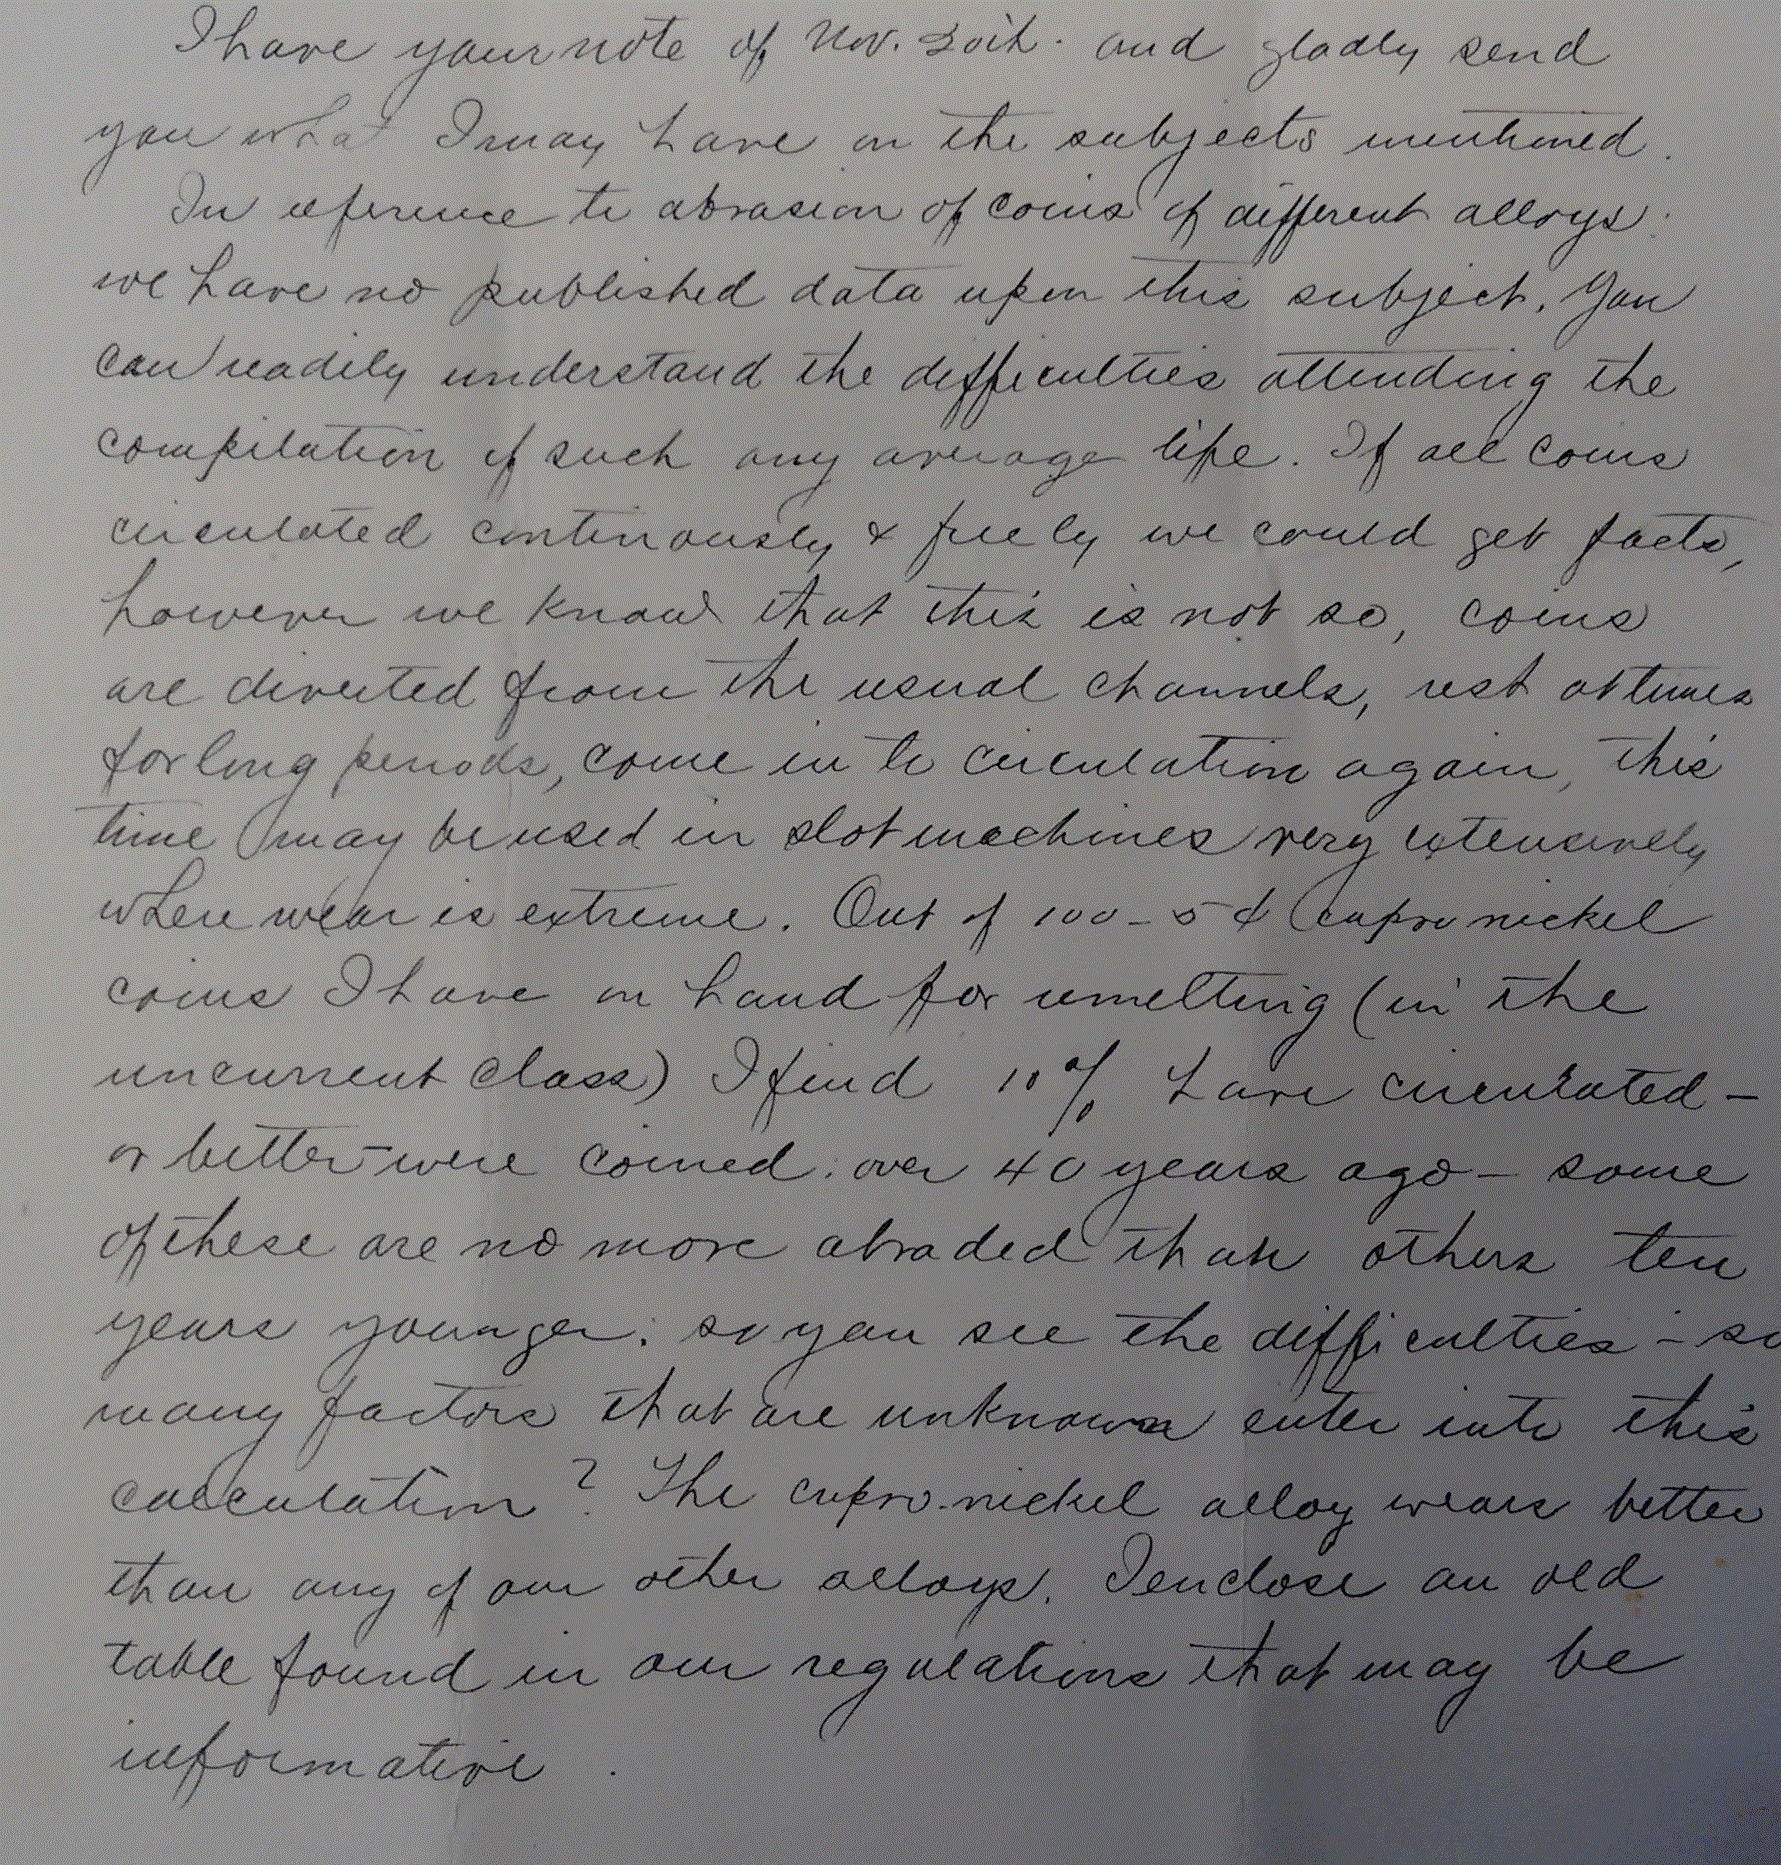 I have your note of Nov. 20th. and gladly send
you what I may have on the subjects mentioned.
In reference to abrasion of coins of different alloys:
we have no published data upon this subject. You
can readily understand the difficulties attending the
compilation of such any average life. If all coins
circulated continously & freely we could get facts,
however we know that this is not so, coins
are diverted from the usual channels, rest at times
for long periods, come in to circulation again, this
time may be used in slot machines very extensively
where wear is extreme. Out of 100 - 5 ¢ Cupro nickel
coins I have on hand for remelting (in the
uncurrent class) I find 10% have circulated -
or better - were coined over 40 years ago - some
of these are no more abraded than others ten
years younger: so you see the difficulties - so
many factors that are unknown enter into this
calculation? The cupro-nickel alloy wears better
than any of our other alloys. I enclose an old
table found in our regulations that may be
informative.